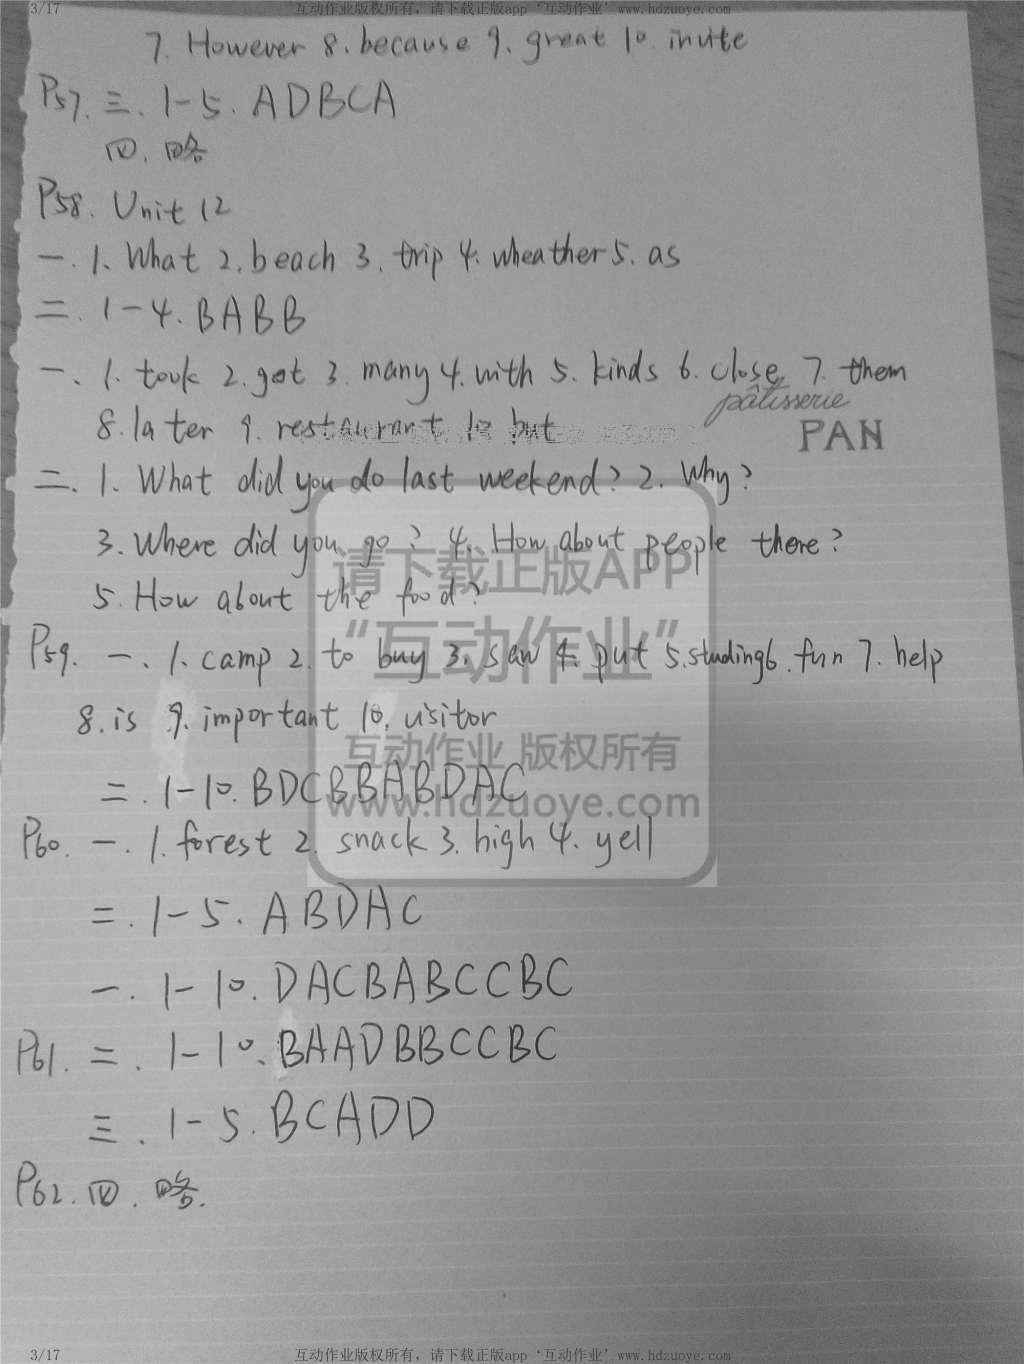 3/17 互动作业版权所有，请下载正版app‘互动作业’www.hdzuoye.com
7. However 8. because 9. great 10. invite
P57. 三. 1-5. ADBCA
四. 略
P58. Unit 12
一. 1. What 2. beach 3. trip 4. wheather 5. as
二. 1-4. BABB
一、1. took 2. got 3. many 4. with 5. kinds 6. close 7. them
pâtisserie
8. later 9. restaurant 10 but
PAN
二、1. What did you do last weekend? 2. Why?
3. Where did you go? 4. How about people there?
请下载正版APP
5. How about the food?
“互动作业”
P59. 一、1. camp 2. to buy 3. saw 4. put 5. studing 6. fun 7. help
8. is 9. important 10. visitor
互动作业 版权所有
二. 1-10. BDCBBABDAC
www.hdzuoye.com
P60. 一. 1. forest 2. snack 3. high 4. yell
二. 1-5. ABDAC
一. 1-10. DACBABCCBC
P61. 二. 1-10. BAADBBCCBC
三. 1-5. BCADD
P62. 四. 略.
3/17 互动作业版权所有，请下载正版app‘互动作业’www.hdzuoye.com